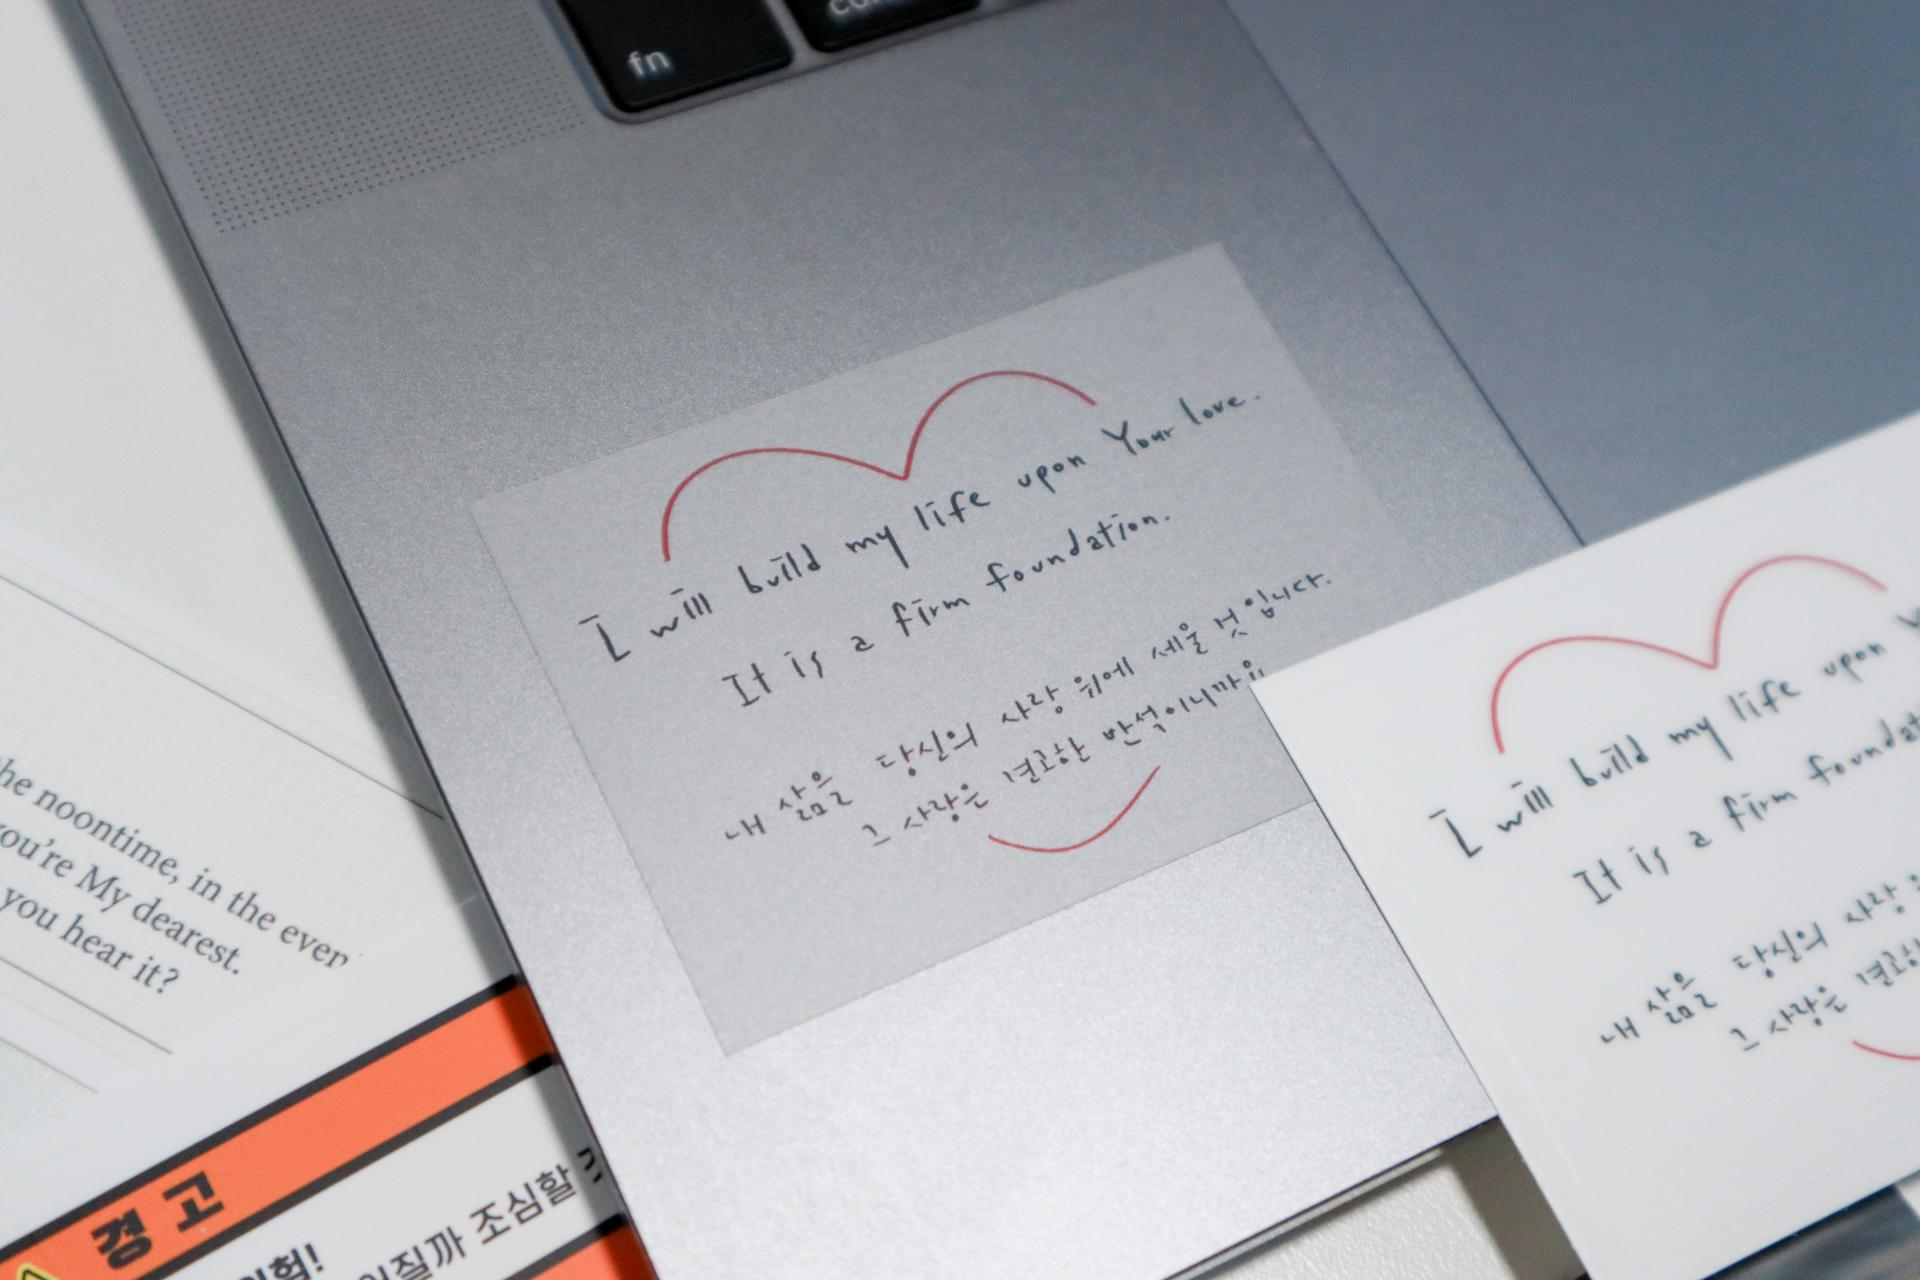 fn
I will build my life upon Your love.
It is a firm foundation.
내 삶을 당신의 사랑 위에 세울 것입니다.
그 사랑은 견고한 반석이니까요
I will build my life upon
It is a firm
내 삶을 당신의 사랑
그 사랑은
noontime, in the
you're My dearest.
you hear it?
경고
조심할